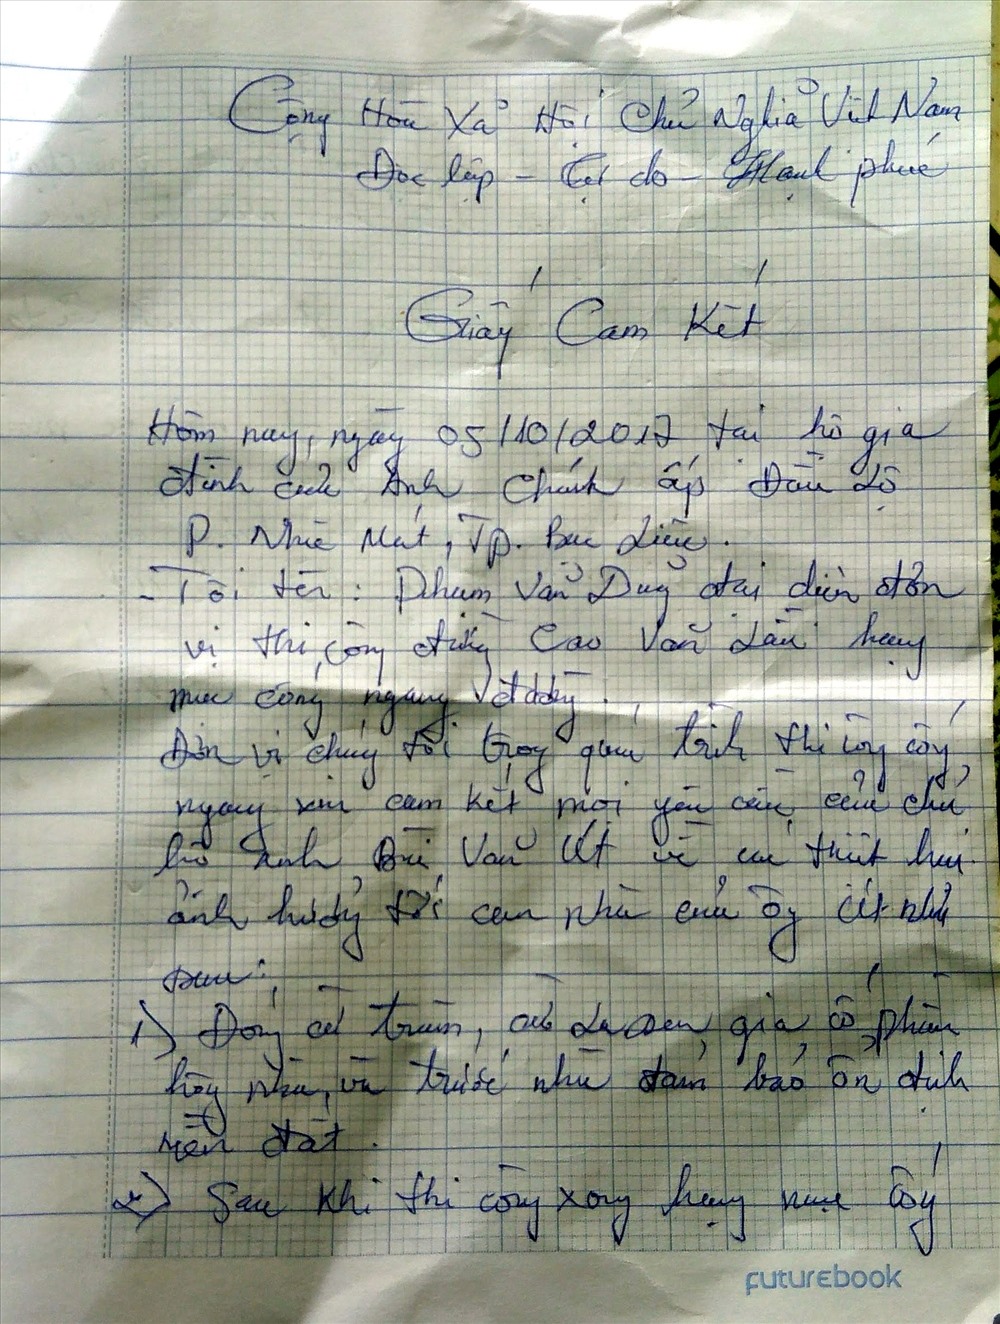 Cộng Hòa Xả Hội Chủ Nghỉa Việt Nam
Độc lập - Tự do - Hạnh phúc
Giấy Cam Kết
Hôm nay, ngày 05/10/2017 tại hộ gia
đình của Anh Chánh ấp Đầu Lộ
P. Nhà Mát, Tp. Bạc Liêu.
- Tôi tên: Phạm Văn Duy đại diện đơn
vị thi công đường Cao Văn Lầu hạng
mục cống ngang đường.
Đơn vị chúng tôi trong quá trình thi công cống
ngang xin cam kết mọi yêu cầu của chủ
hộ anh Bùi Văn Út về các thiệt hại
ảnh hưởng tới căn nhà của ông Út như
sau:
1) Đóng cừ tràm, gia cố phần
hông nhà, và trước nhà đảm bảo ổn định
nền đất.
2) Sau khi thi công xong hạng mục cống
futurebook